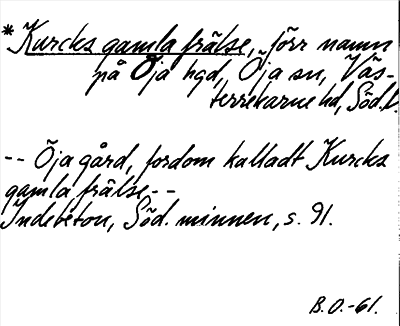 *Kurcks gamla frälse, förr namn
på Öja hgd, Öja sn, Väs-
terrekarne hd, Söd.l.
-- Öja gård, fordom kalladt Kurcks
gamla frälse --
Indebetou, Söd. minnen, s. 91.
B.O.-61.